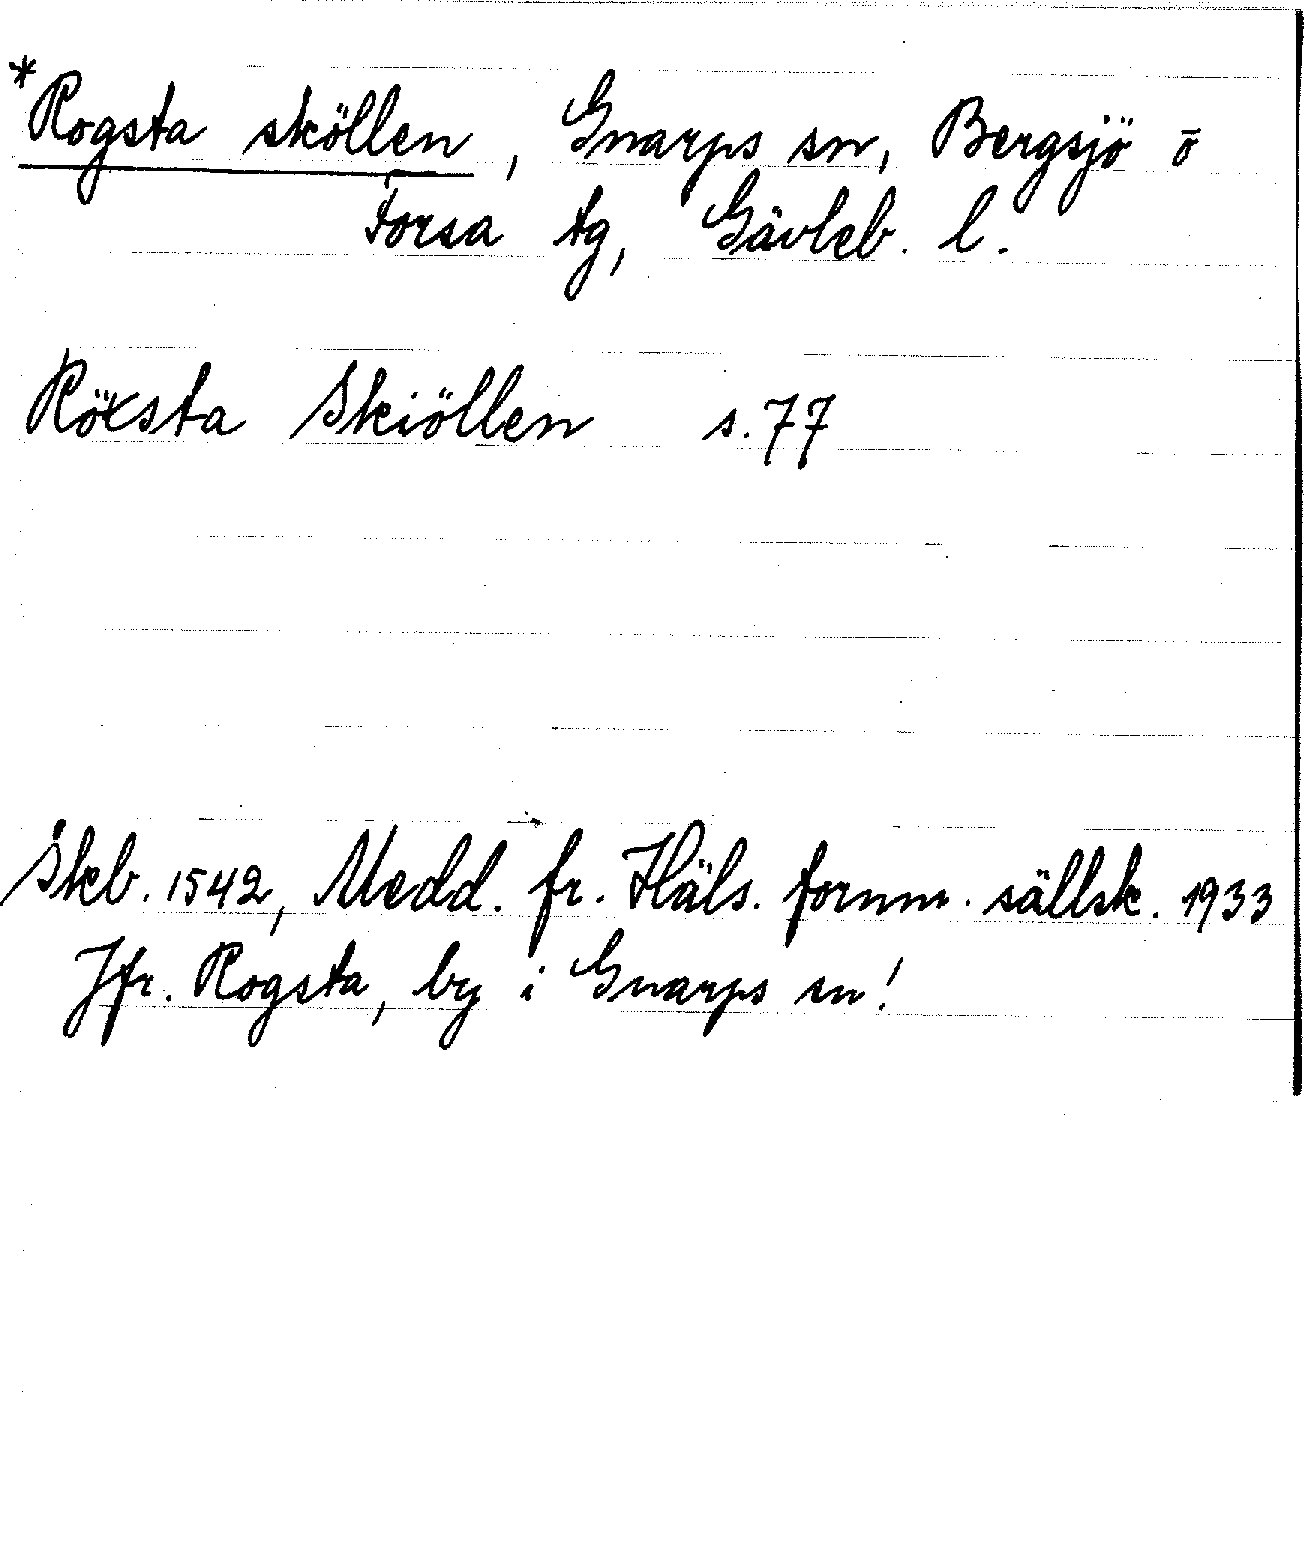 *Rogsta sköllen, Gnarps sn, Bergsjö o
Forsa tg, Gävleb. l.
Röxsta Skiöllen s. 77
Skb. 1542, Medd. fr. Häls. fornm. sällsk. 1933
Jfr. Rogsta, by i Gnarps sn!